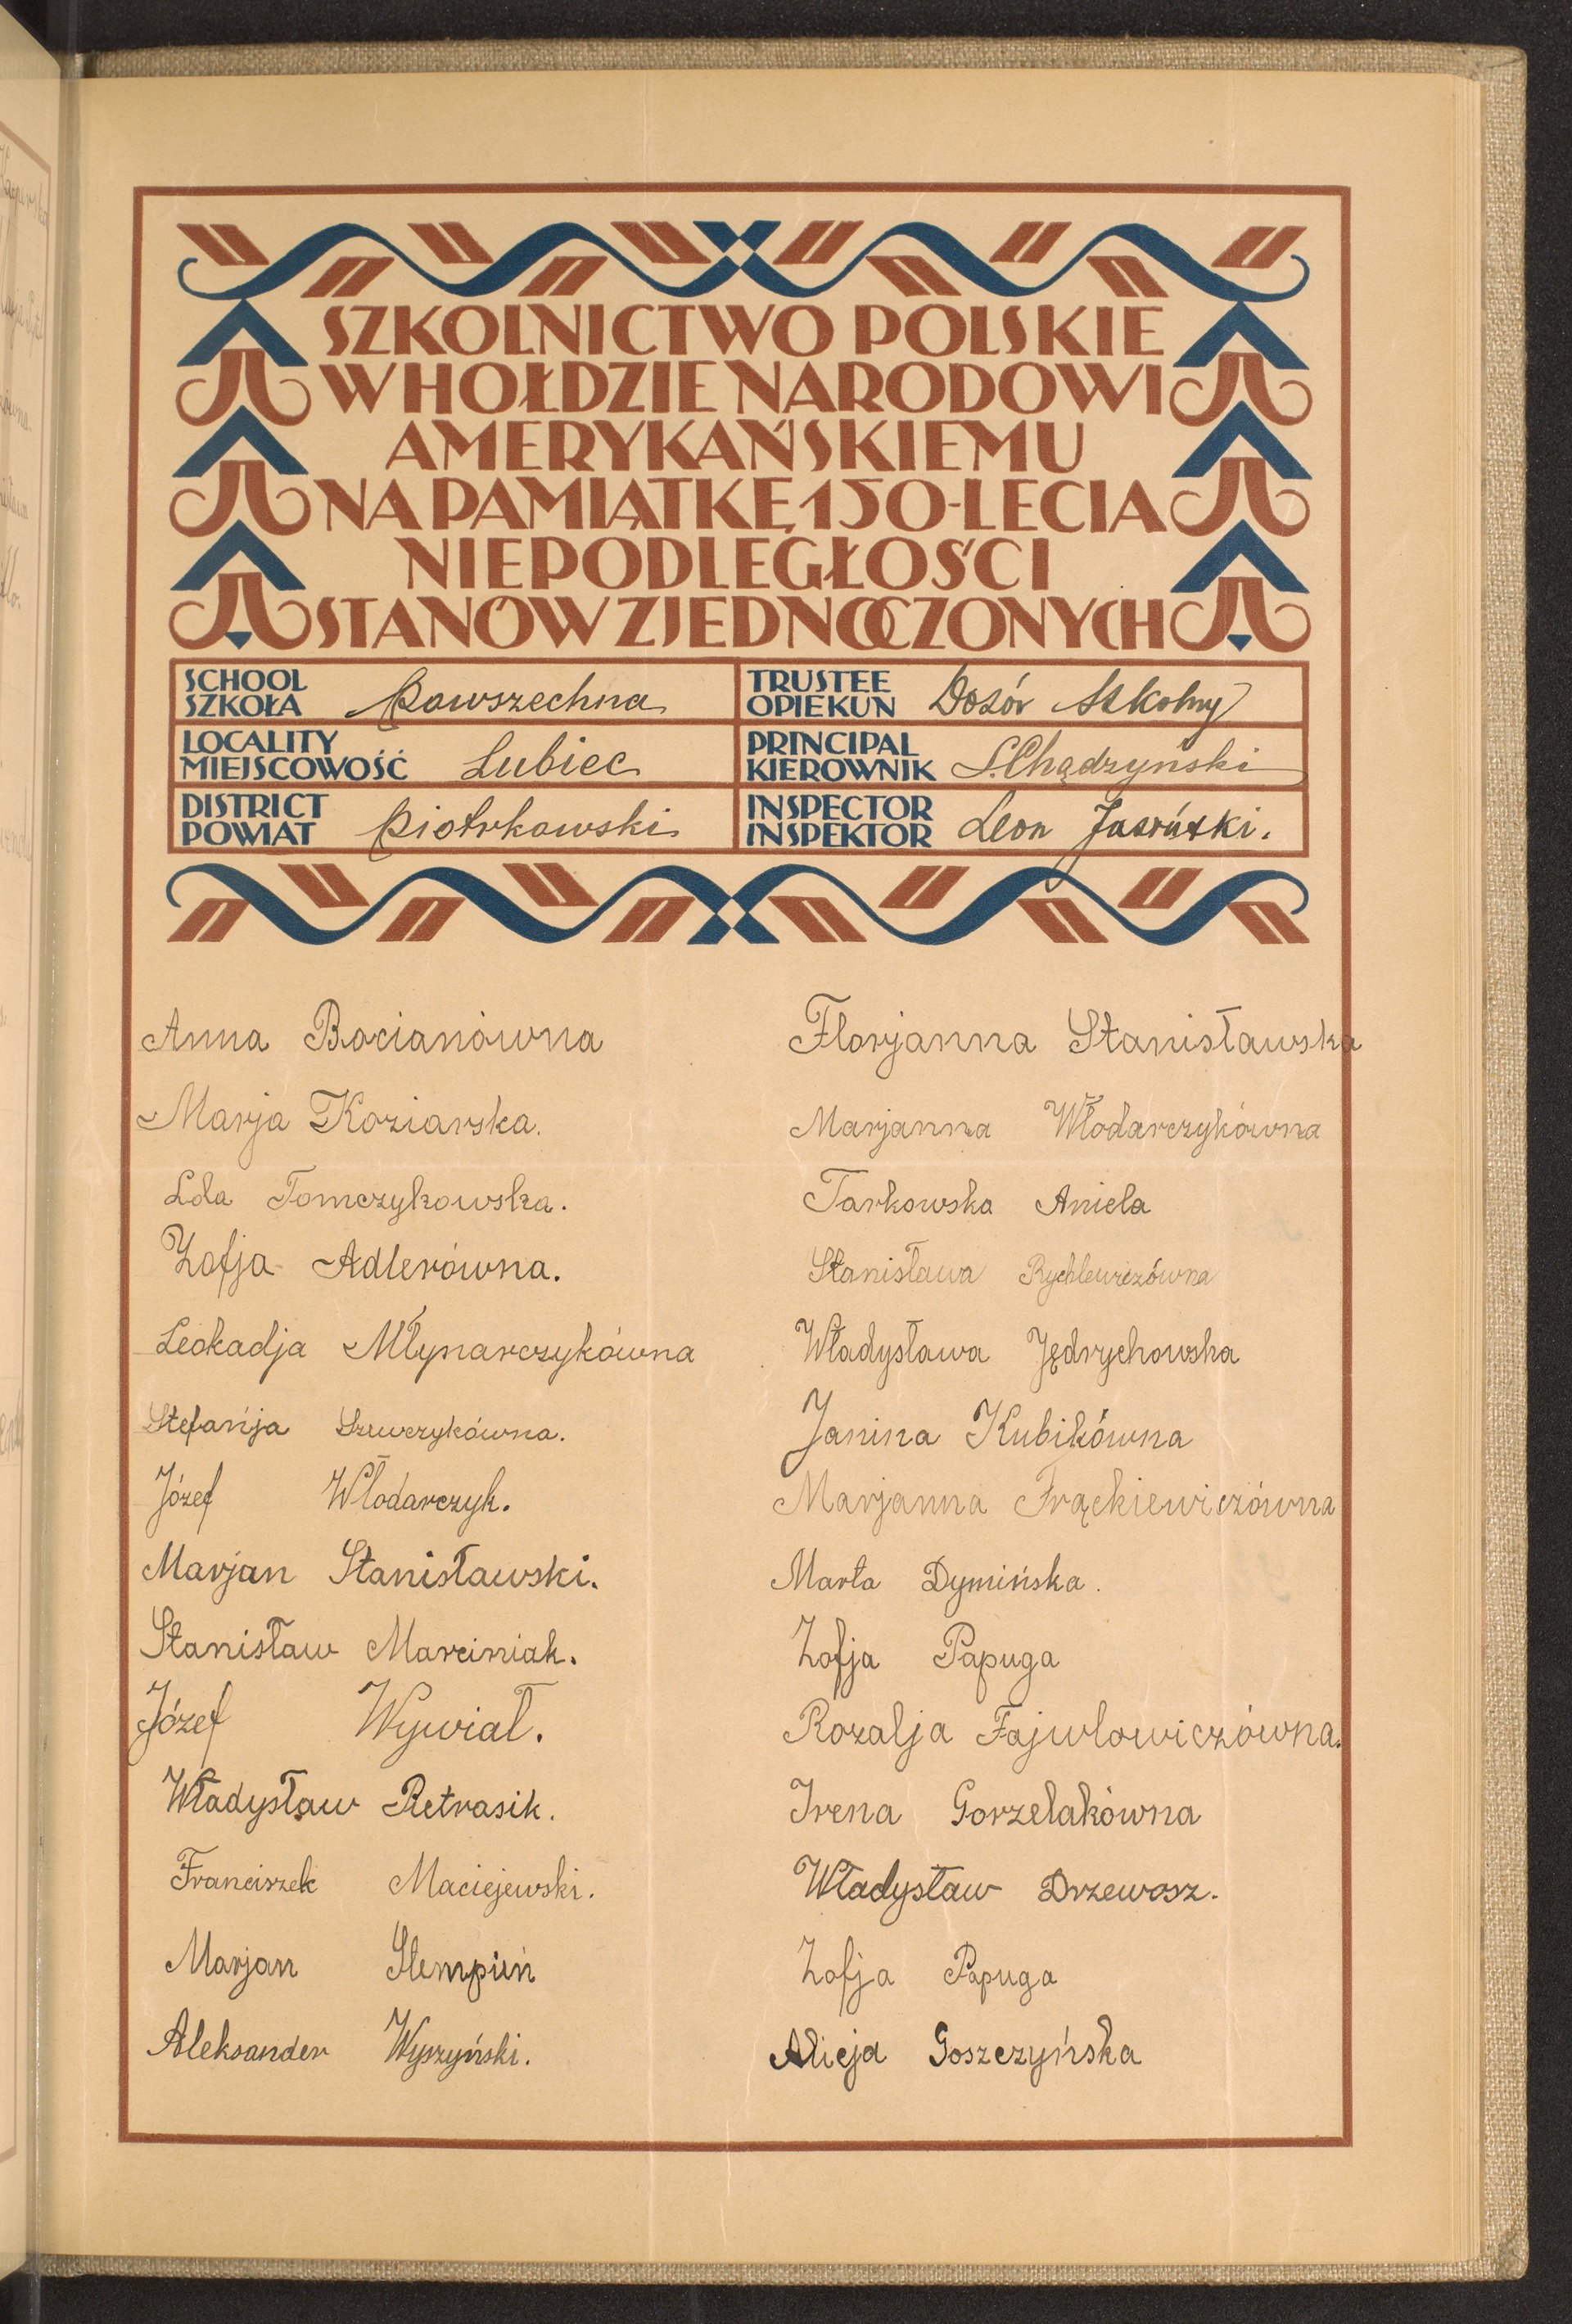 SZKOLNICTWO POLSKIE
W HOŁDZIE NARODOWI
AMERYKAŃSKIEMU
NA PAMIĄTKĘ 150-LECIA
NIEPODLEGŁOŚCI
STANÓW ZJEDNOCZONYCH
SCHOOL
SZKOŁA Powszechna
TRUSTEE
OPIEKUN Dozór Szkolny
LOCALITY
MIEJSCOWOŚĆ Lubiec
PRINCIPAL
KIEROWNIK S. Chądzyński
DISTRICT
POWIAT Piotrkowski
INSPECTOR
INSPEKTOR Leon
Anna Bocianówna
Marja Koziarska.
Lola Tomczykowska.
Zofja Adlerówna.
Leokadja Młynarczykówna
Stefańja Szewczykówna.
Józef Włodarczyk.
Marjan Stanisławski.
Stanisław Marciniak.
Józef Wywiał.
Władysław Petrasik.
Franciszek Maciejewski.
Marjan Stempiń
Aleksander Wyszyński.
Florjanna Stanisławska
Marjanna Włodarczykówna
Tarkowska Aniela
Stanisława Rychlewiczówna
Władysława Jędrychowska
Janina Kubikówna
Marjanna Frąckiewiczówna
Marta Dymińska.
Zofja Papuga
Rozalja Fajwlowiczówna.
Irena Gorzelakówna
Władysław Drzewosz.
Zofja Papuga
Alicja Goszczyńska